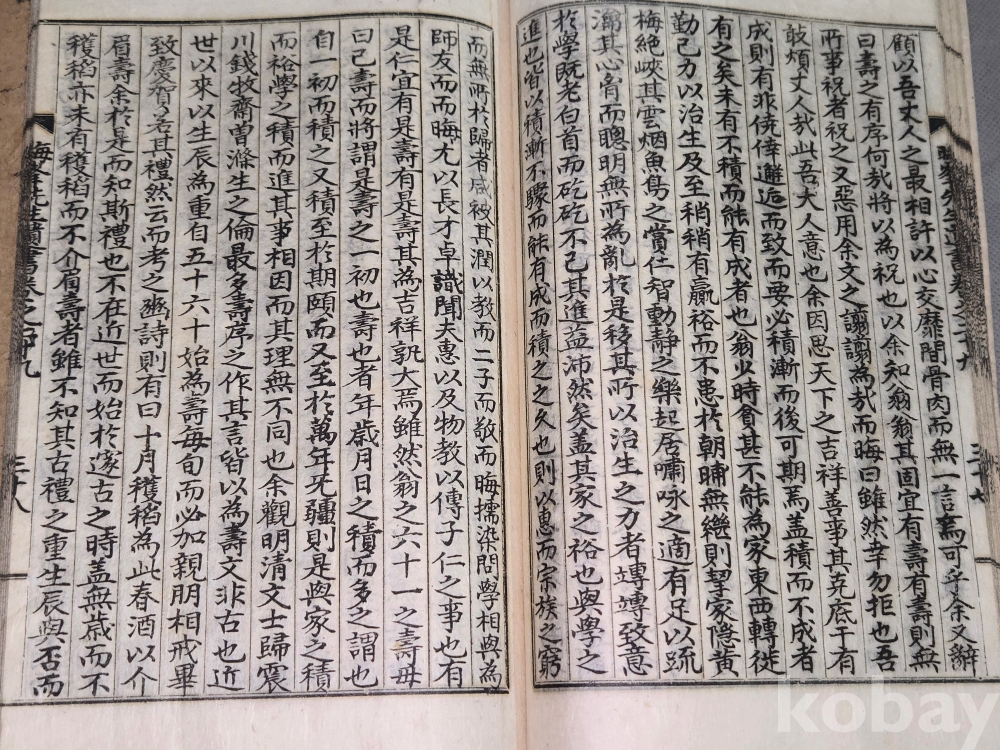 顧以吾丈人之最相許以心交靡間骨肉而無一言焉可乎余又辭
曰壽之有序何哉將以為祝也以余知翁翁其固宜有壽有壽則無
所事祝者祝之又惡用余文之謭謭為哉而晦曰雖然幸勿拒也吾
敢煩丈人哉此吾大人意也余因思天下之吉祥善事其克底于有
成則有非僥倖邂逅而致而要必積漸而後可期焉盖積而不成者
有之矣未有不積而能有成者也翁少時貧甚不能為家東西轉徙
勤己力以治生及至稍稍有贏裕而不患於朝晡無繼則挈家隱黃
梅絶峽其雲烟魚鳥之賞仁智動靜之樂起居嘯咏之適有足以疏
瀹其心胷而聰明無所為亂於是移其所以治生之力者竱竱致意
於學既老白首而矻矻不已其進益沛然矣盖其家之裕也與學之
進也皆以積漸不驟而能有成而積之之久也則以惠而宗族之窮
而無所於歸者咸被其潤以教而二子而敬而晦擩染問學相與為
師友而而晦尤以長才卓識聞夫惠以及物教以傳子仁之事也有
是仁宜有是壽有是壽其為吉祥孰大焉雖然翁之六十一之壽毋
曰己壽而將謂是壽之一初也壽也者年歲月日之積而多之謂也
自一初而積之又積至於期頤而又至於萬年旡疆則是與家之積
而裕學之積而進其事相因而其理無不同也余觀明清文士歸震
川錢牧齋曾滌生之倫最多壽序之作其言皆以為壽文非古也近
世以來以生辰為重自五十六十始為壽每旬而必加親朋相戒畢
致慶賀若其禮然云而考之豳詩則有曰十月穫稻為此春酒以介
眉壽余於是而知斯禮也不在近世而始於邃古之時盖無歲而不
穫稻亦未有穫稻而不介眉壽者雖不知其古禮之重生辰與否而
kobay